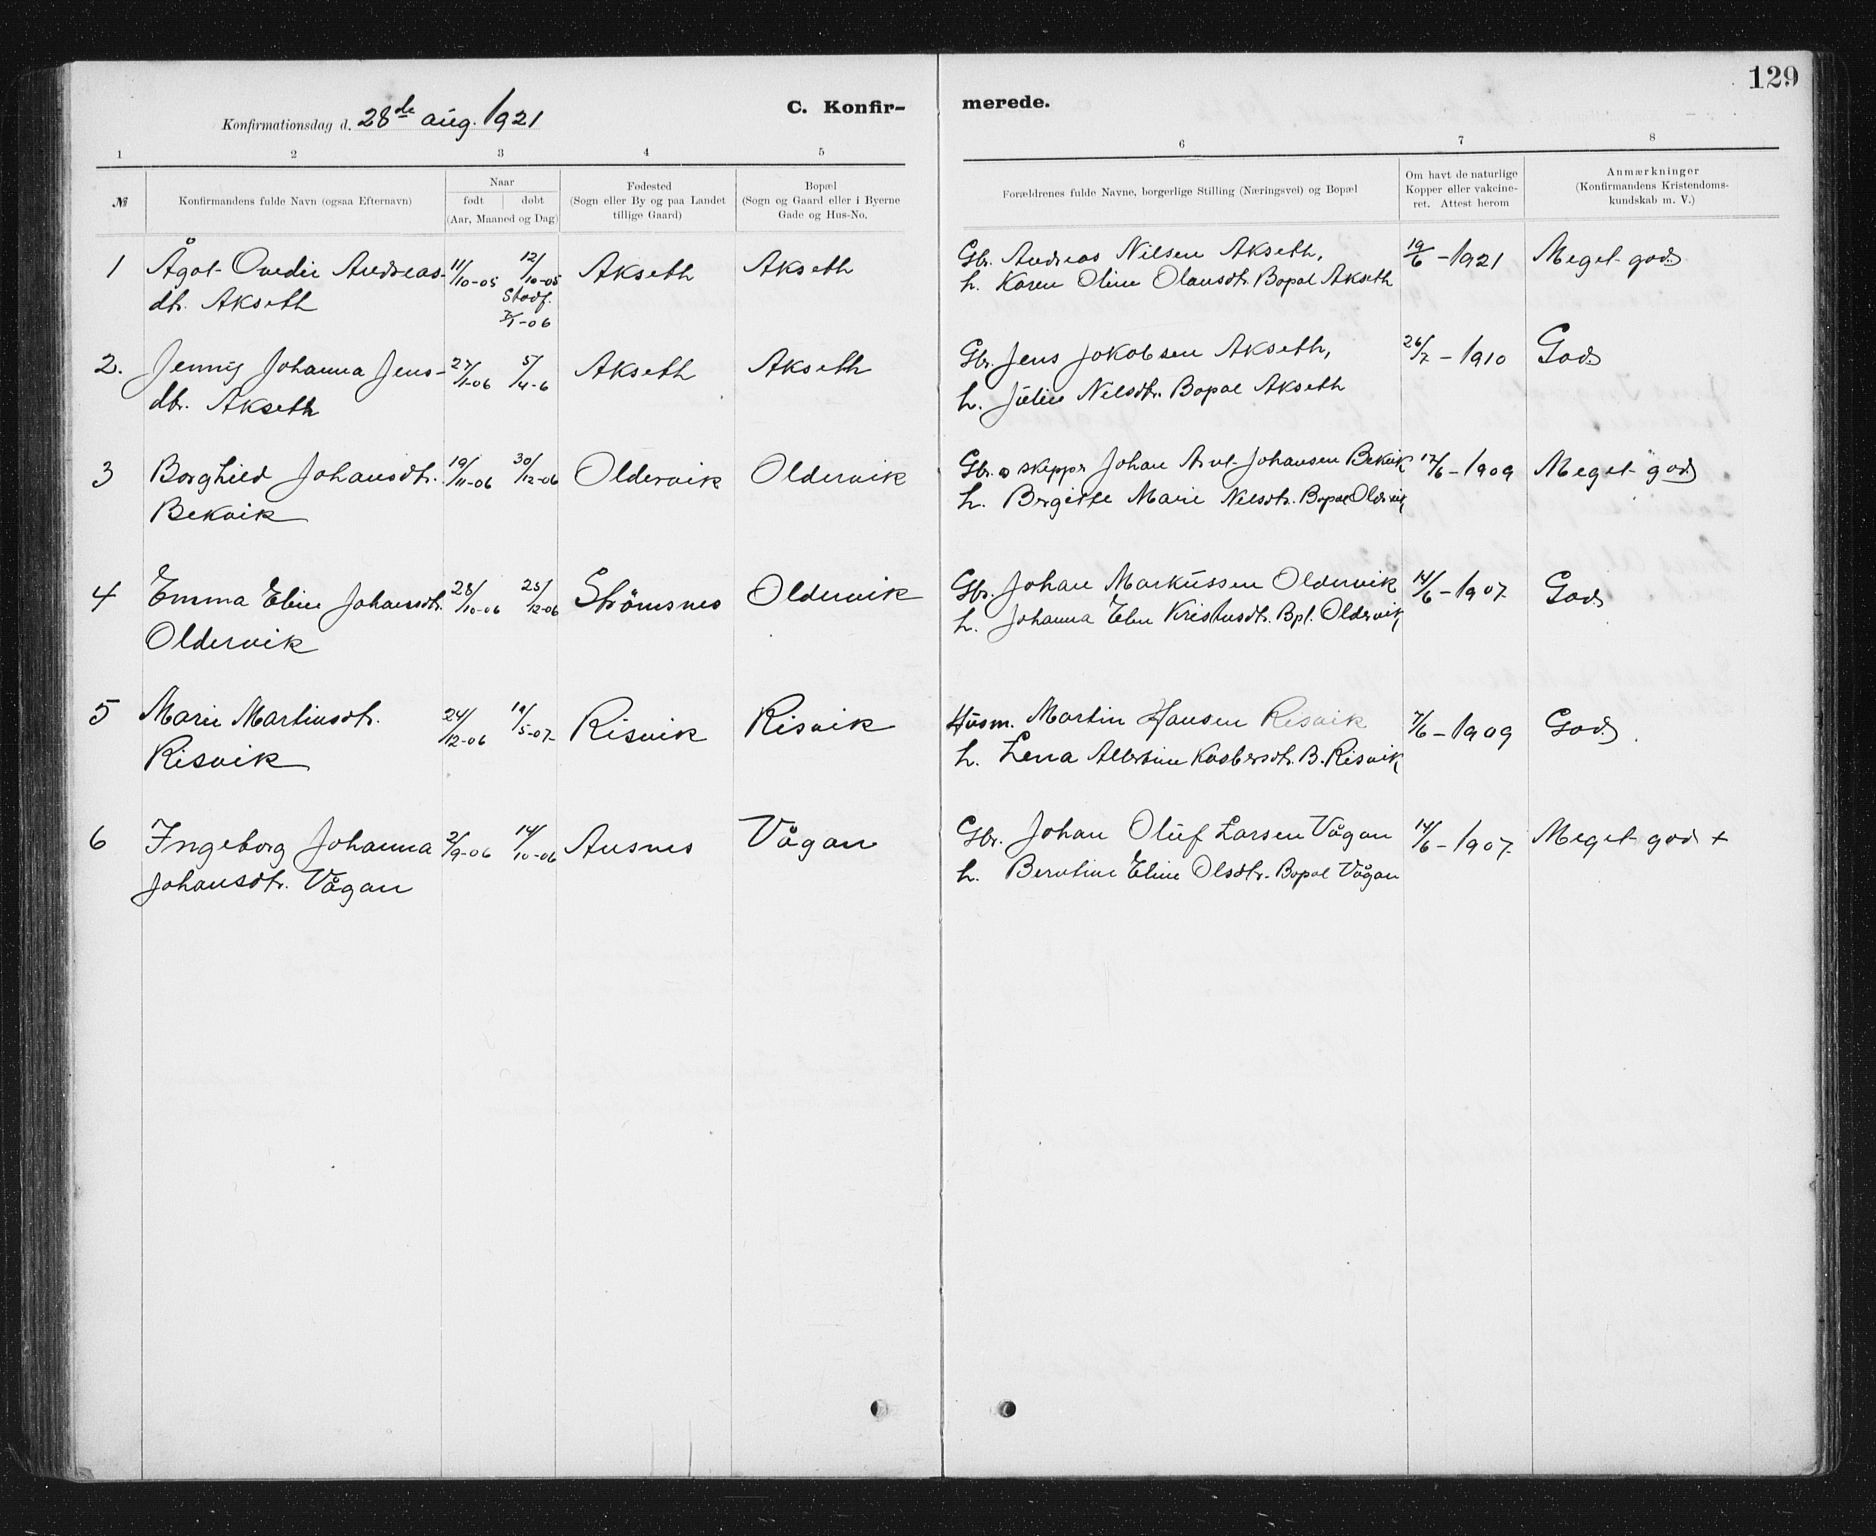 129
C. Konfirmerede.
Konfirmationsdag d. 28de aug. 1921
1 2 3 4 5 6 7 8
№ Konfirmandens fulde Navn (ogsaa Efternavn) Naar født døbt (Aar, Maaned og Dag) Fødested (Sogn eller By og paa Landet tillige Gaard) Bopæl (Sogn og Gaard eller i Byerne Gade og Hus-No. Forældrenes fulde Navne, borgerlige Stilling (Næringsvei) og Bopæl Om havt de naturlige Kopper eller vakcineret. Attest herom Anmærkninger (Konfirmandens Kristendomskundskab m. V.)
1 Ågot Ovedie Andreas- 11/10-05 12/10-05 Akseth Akseth Gbr. Andreas Nilsen Akseth, 19/6-1921 Meget god
dtr. Akseth Stadf. h. Karen Oline Olausdtr. Bopæl Akseth
7/1-06
2. Jenny Johanna Jens- 27/1-06 5/4-6 Akseth Akseth Gbr. Jens Jokobsen Akseth, 26/7-1910 God
dtr. Akseth h. Julie Nilsdtr. Bopæl Akseth
3 Borghild Johansdtr. 19/11-06 30/12-06 Oldervik Oldervik Gbr. o skippr Johan Arnt Johansen Bekvik 12/6-1909 Meget god
Bekvik h. Brgitte Marie Nilsdtr. Bopæl Oldervik
4 Emma Eline Johansdtr. 28/10-06 25/12-06 Strömsnes Oldervik Gbr. Johan Markussen Oldervik 14/6-1907. God
Oldervik h. Johanna Elen Kristensdtr. Bpl. Oldervik
5 Marie Martinsdtr. 24/12-06 19/5-07- Risvik Risvik Husm. Martin Hansen Risvik 7/6-1909 God
Risvik h. Lena Albertine Kasbersdtr. B. Risvik
6 Ingeborg Johanna 2/9-06 14/10-06 Ausnes Vågan Gbr. Johan Oluf Larsen Vågan 14/6-1907. Meget god +
Johansdtr. Vågan h. Berntine Eline Olsdtr. Bopæl Vågan